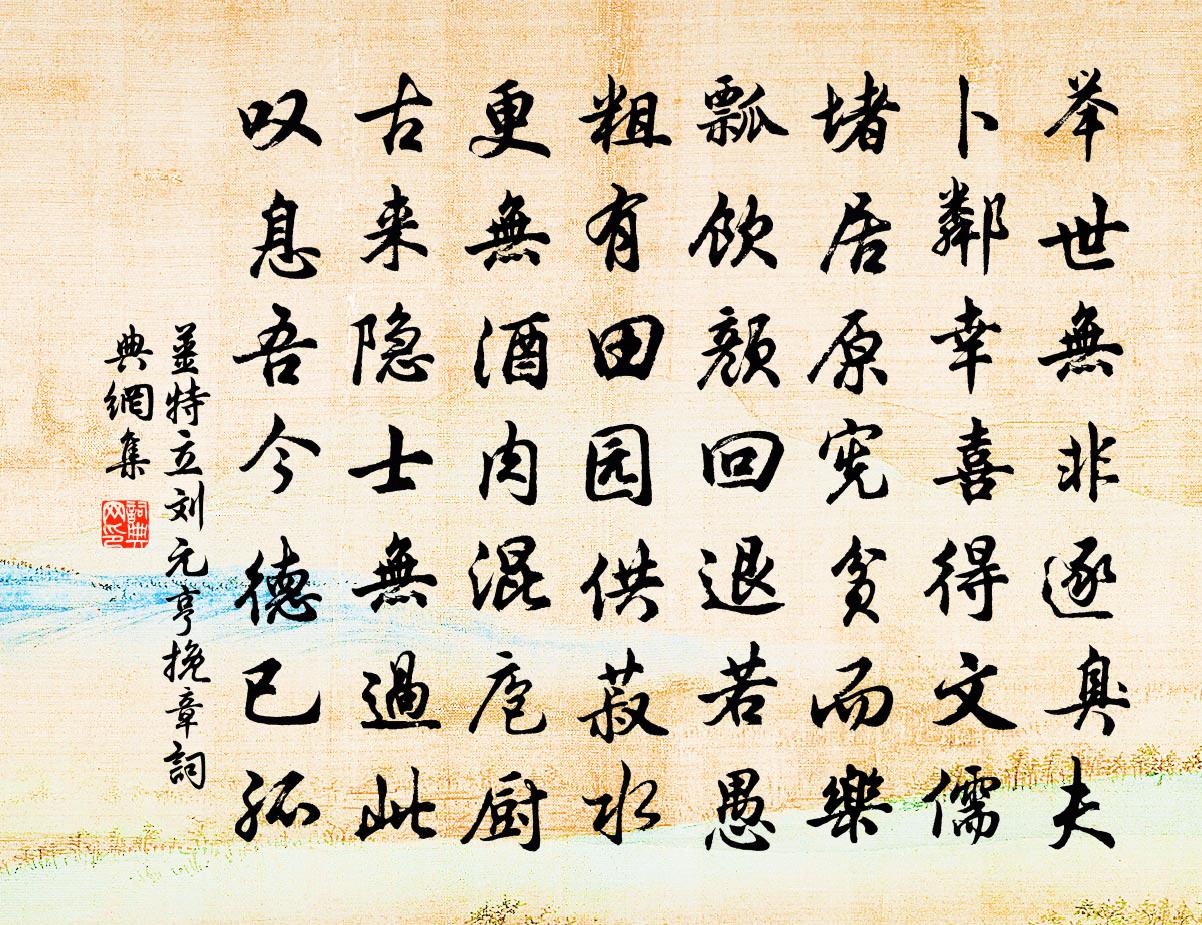 举世無非逐臭夫
卜鄰幸喜得文儒
堵居原宪贫而樂
瓢飲颜回退若愚
粗有田园供菽水
更無酒肉混庖厨
古来隐士無過此
叹息吾今德已孤
姜特立刘元亨挽章詞
典網集
詞典
网印